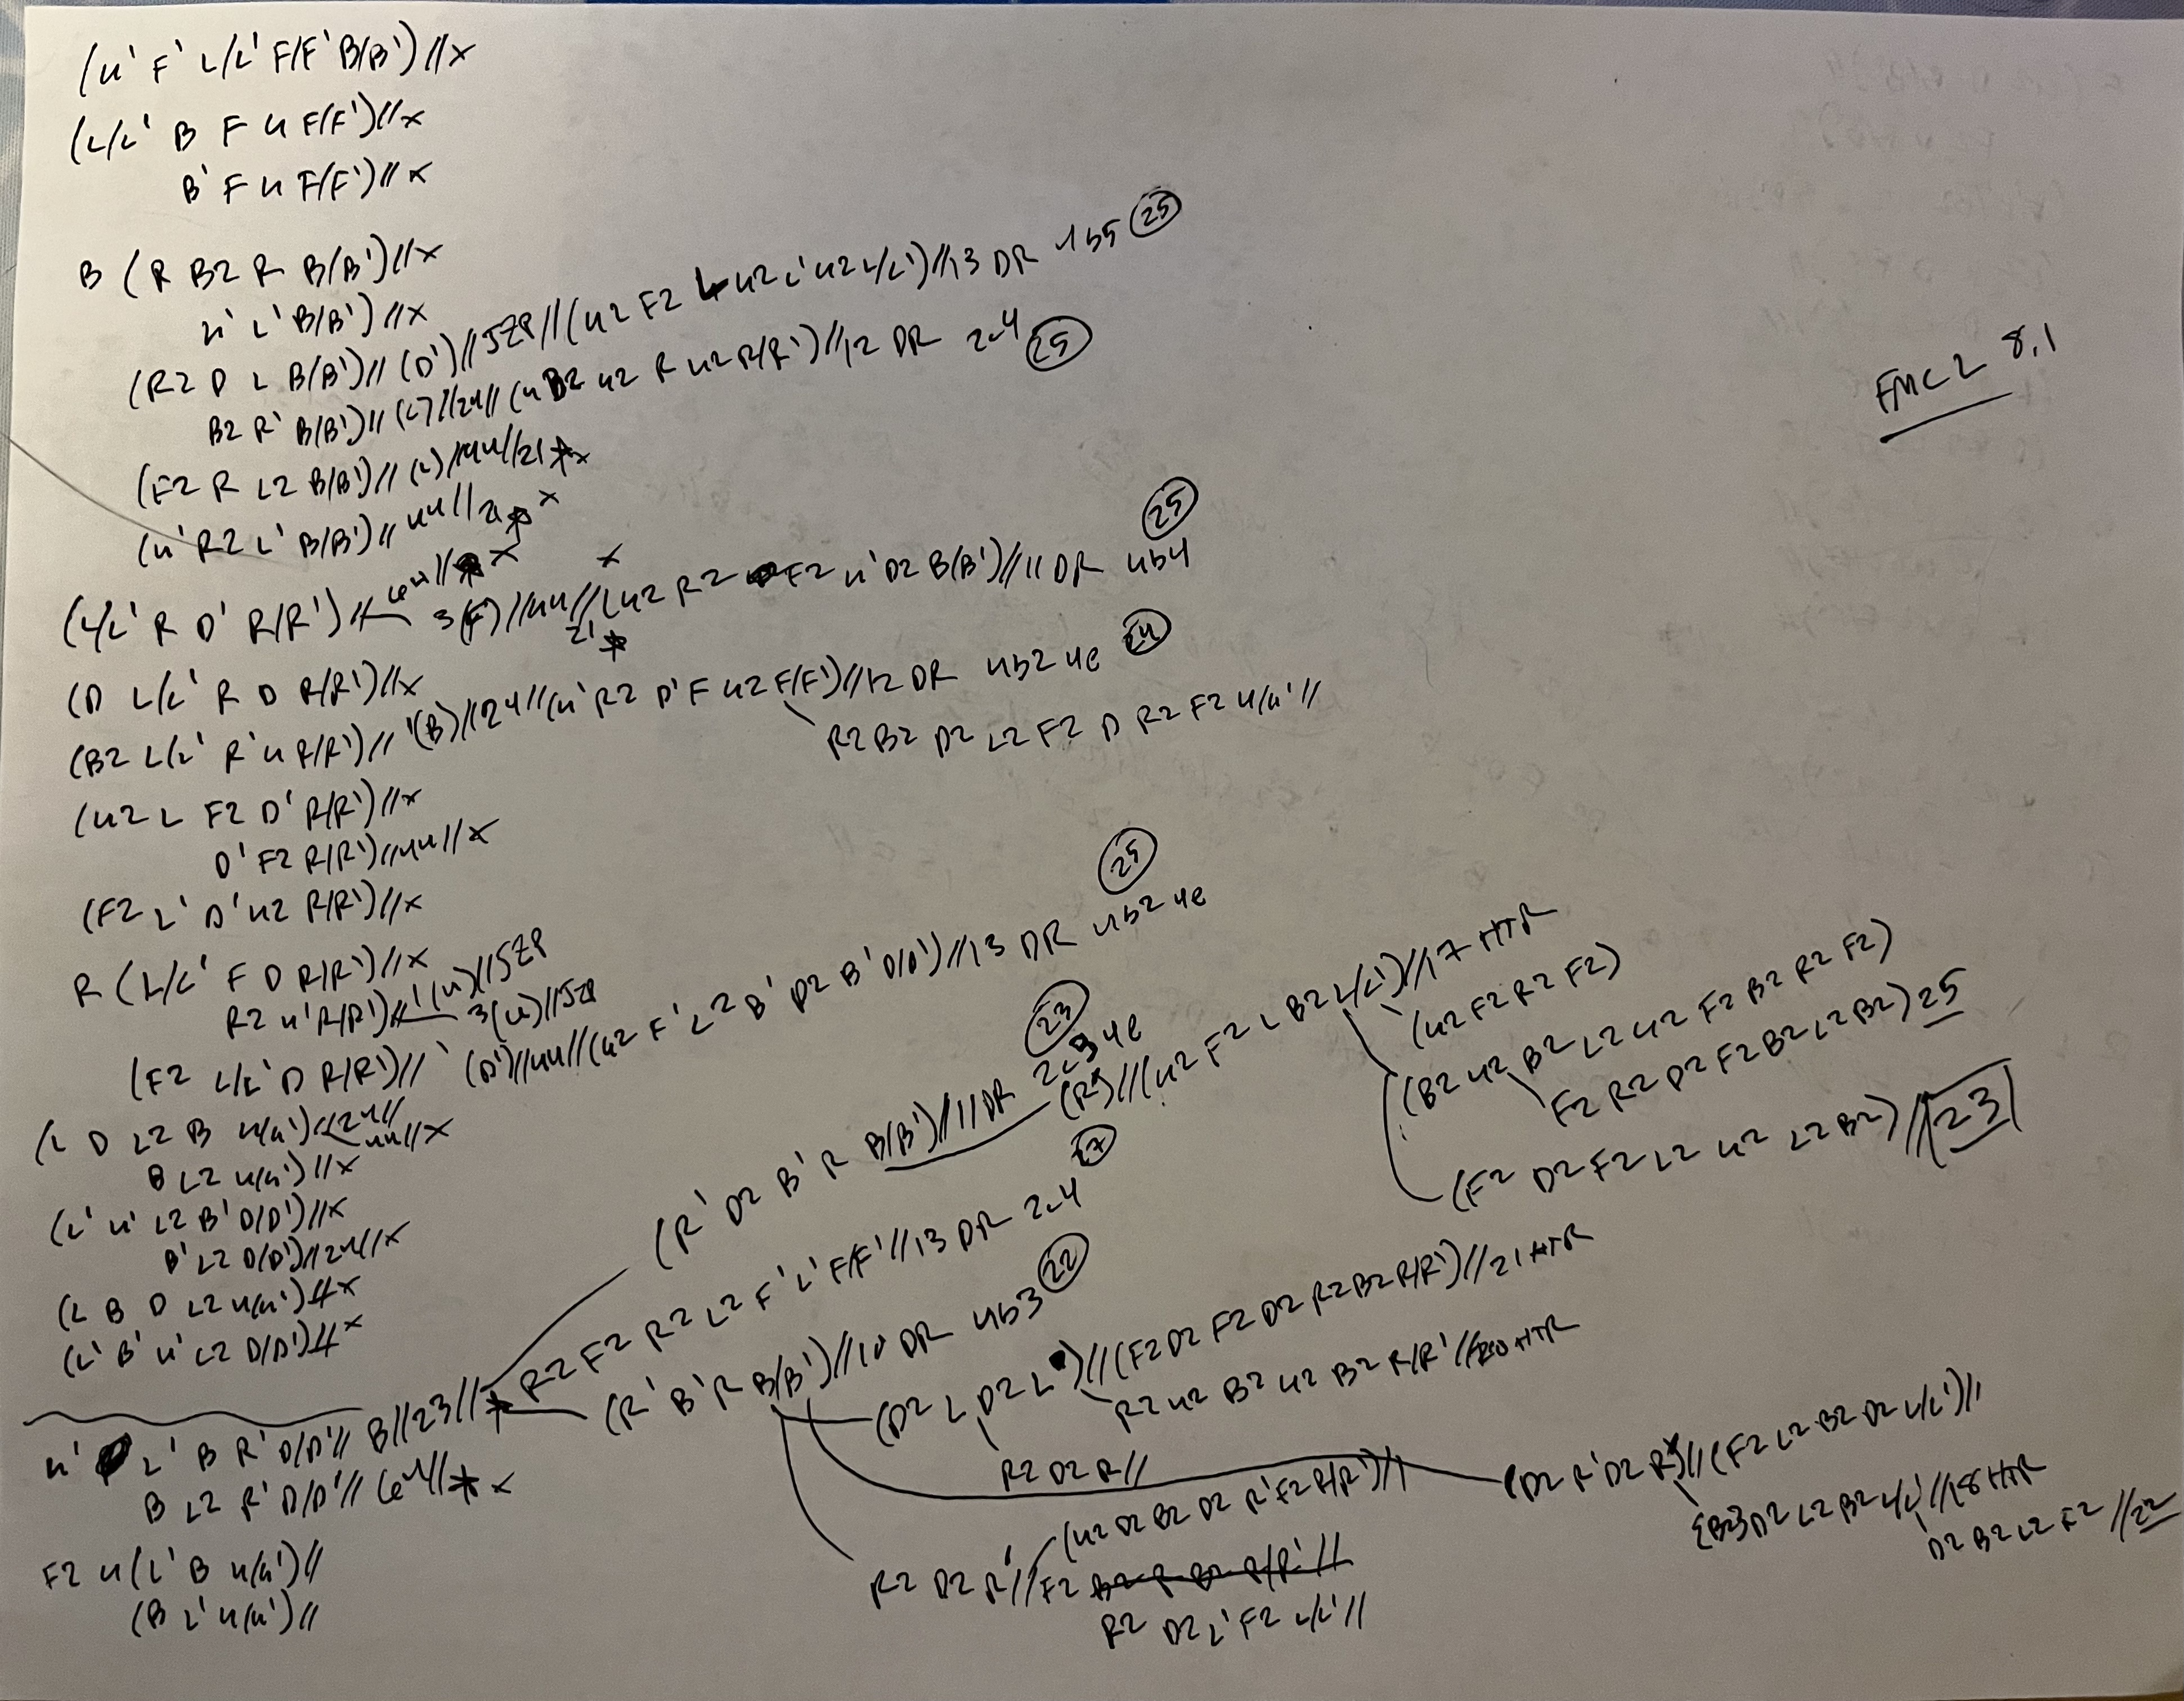 (u' F' L/L' F/F' B/B')//x
(L/L' B F u F/F')//x
B' F u F/F')//x
B (R B2 R B/B')//x
u' L' B/B')//x
(R2 D L B/B')//(D')//5ZP//(u2 F2 L u2 L' u2 L/L')//13 DR 4b5 25
B2 R' B/B')//(L')//2u//(u B2 u2 R u2 R/R')//12 DR 2c4 25
(F2 R L2 B/B')//(L)/4u//21 x
(u' R2 L' B/B')//4u//21 x
(L/L' R D' R/R')// 6e4// x
3(F)//4u//(u2 R2 F2 u' D2 B/B')//11 DR 4b4 25
21 x
(D L/L' R D R/R')//x
(B2 L/L' R' u R/R')//'(B)//24//(u' R2 D' F u2 F/F')//12 DR 4b2 4e 24
R2 B2 D2 L2 F2 D R2 F2 u/u'//
(u2 L F2 D' R/R')//x
D' F2 R/R')//4u//x
(F2 L' D' u2 R/R')//x
R (L/L' F D R/R')//x
R2 u' R/R')//'(u)//5ZP
3(u)//5ZP
(F2 L/L' D R/R')//'(D')//4u//(u2 F' L2 B' D2 B' D/D')//13 DR 4b2 4e 25
(L D L2 B u/u')//24//
4u//x
B L2 u/u')//x
(L' u' L2 B' D/D')//x
B' L2 D/D')//24//x
(L B D L2 u/u')//x
(L' B' u' L2 D/D')//x
u' L' B R' D/D'// B//23//*
(R' D2 B' R B/B')//11 DR 2c3 4e 23
(R')//(u2 F2 L B2 L/L')//17 HTR
(u2 F2 R2 F2)
(B2 u2 B2 L2 u2 F2 B2 R2 F2)
F2 R2 D2 F2 B2 L2 B2) 25
(F2 D2 F2 L2 u2 L2 B2)//23
R2 F2 R2 L2 F' L' F/F'//13 DR 2c4 27
(R' B' R B/B')//10 DR 4b3 22
(D2 L D2 L')//(F2 D2 F2 D2 R2 B2 R/R')//21 HTR
R2 u2 B2 u2 B2 R/R'//20 HTR
R2 D2 R//
(D2 R' D2 R')//(F2 L2 B2 D2 L/L')//
{B2} D2 L2 B2 L/L'//18 HTR
D2 B2 L2 F2 //22
R2 D2 R'//(u2 D2 B2 D2 R' F2 R/R')//
F2
R2 D2 L' F2 L/L'//
B L2 R' D/D'// 6e4//* x
F2 u (L' B u/u')//
(B L' u/u')//
FMC L 8.1